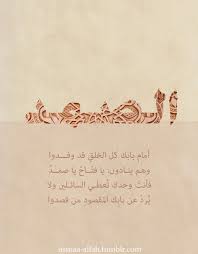 الصمد
أمام بابك كل الخلق قد وفدوا
وهم ينادون: يا فتاح يا صمد
فأنت وحدك تعطي السائلين ولا
يرد عن بابك المقصود من قصدوا
asmaa-alfah.tumblr.com